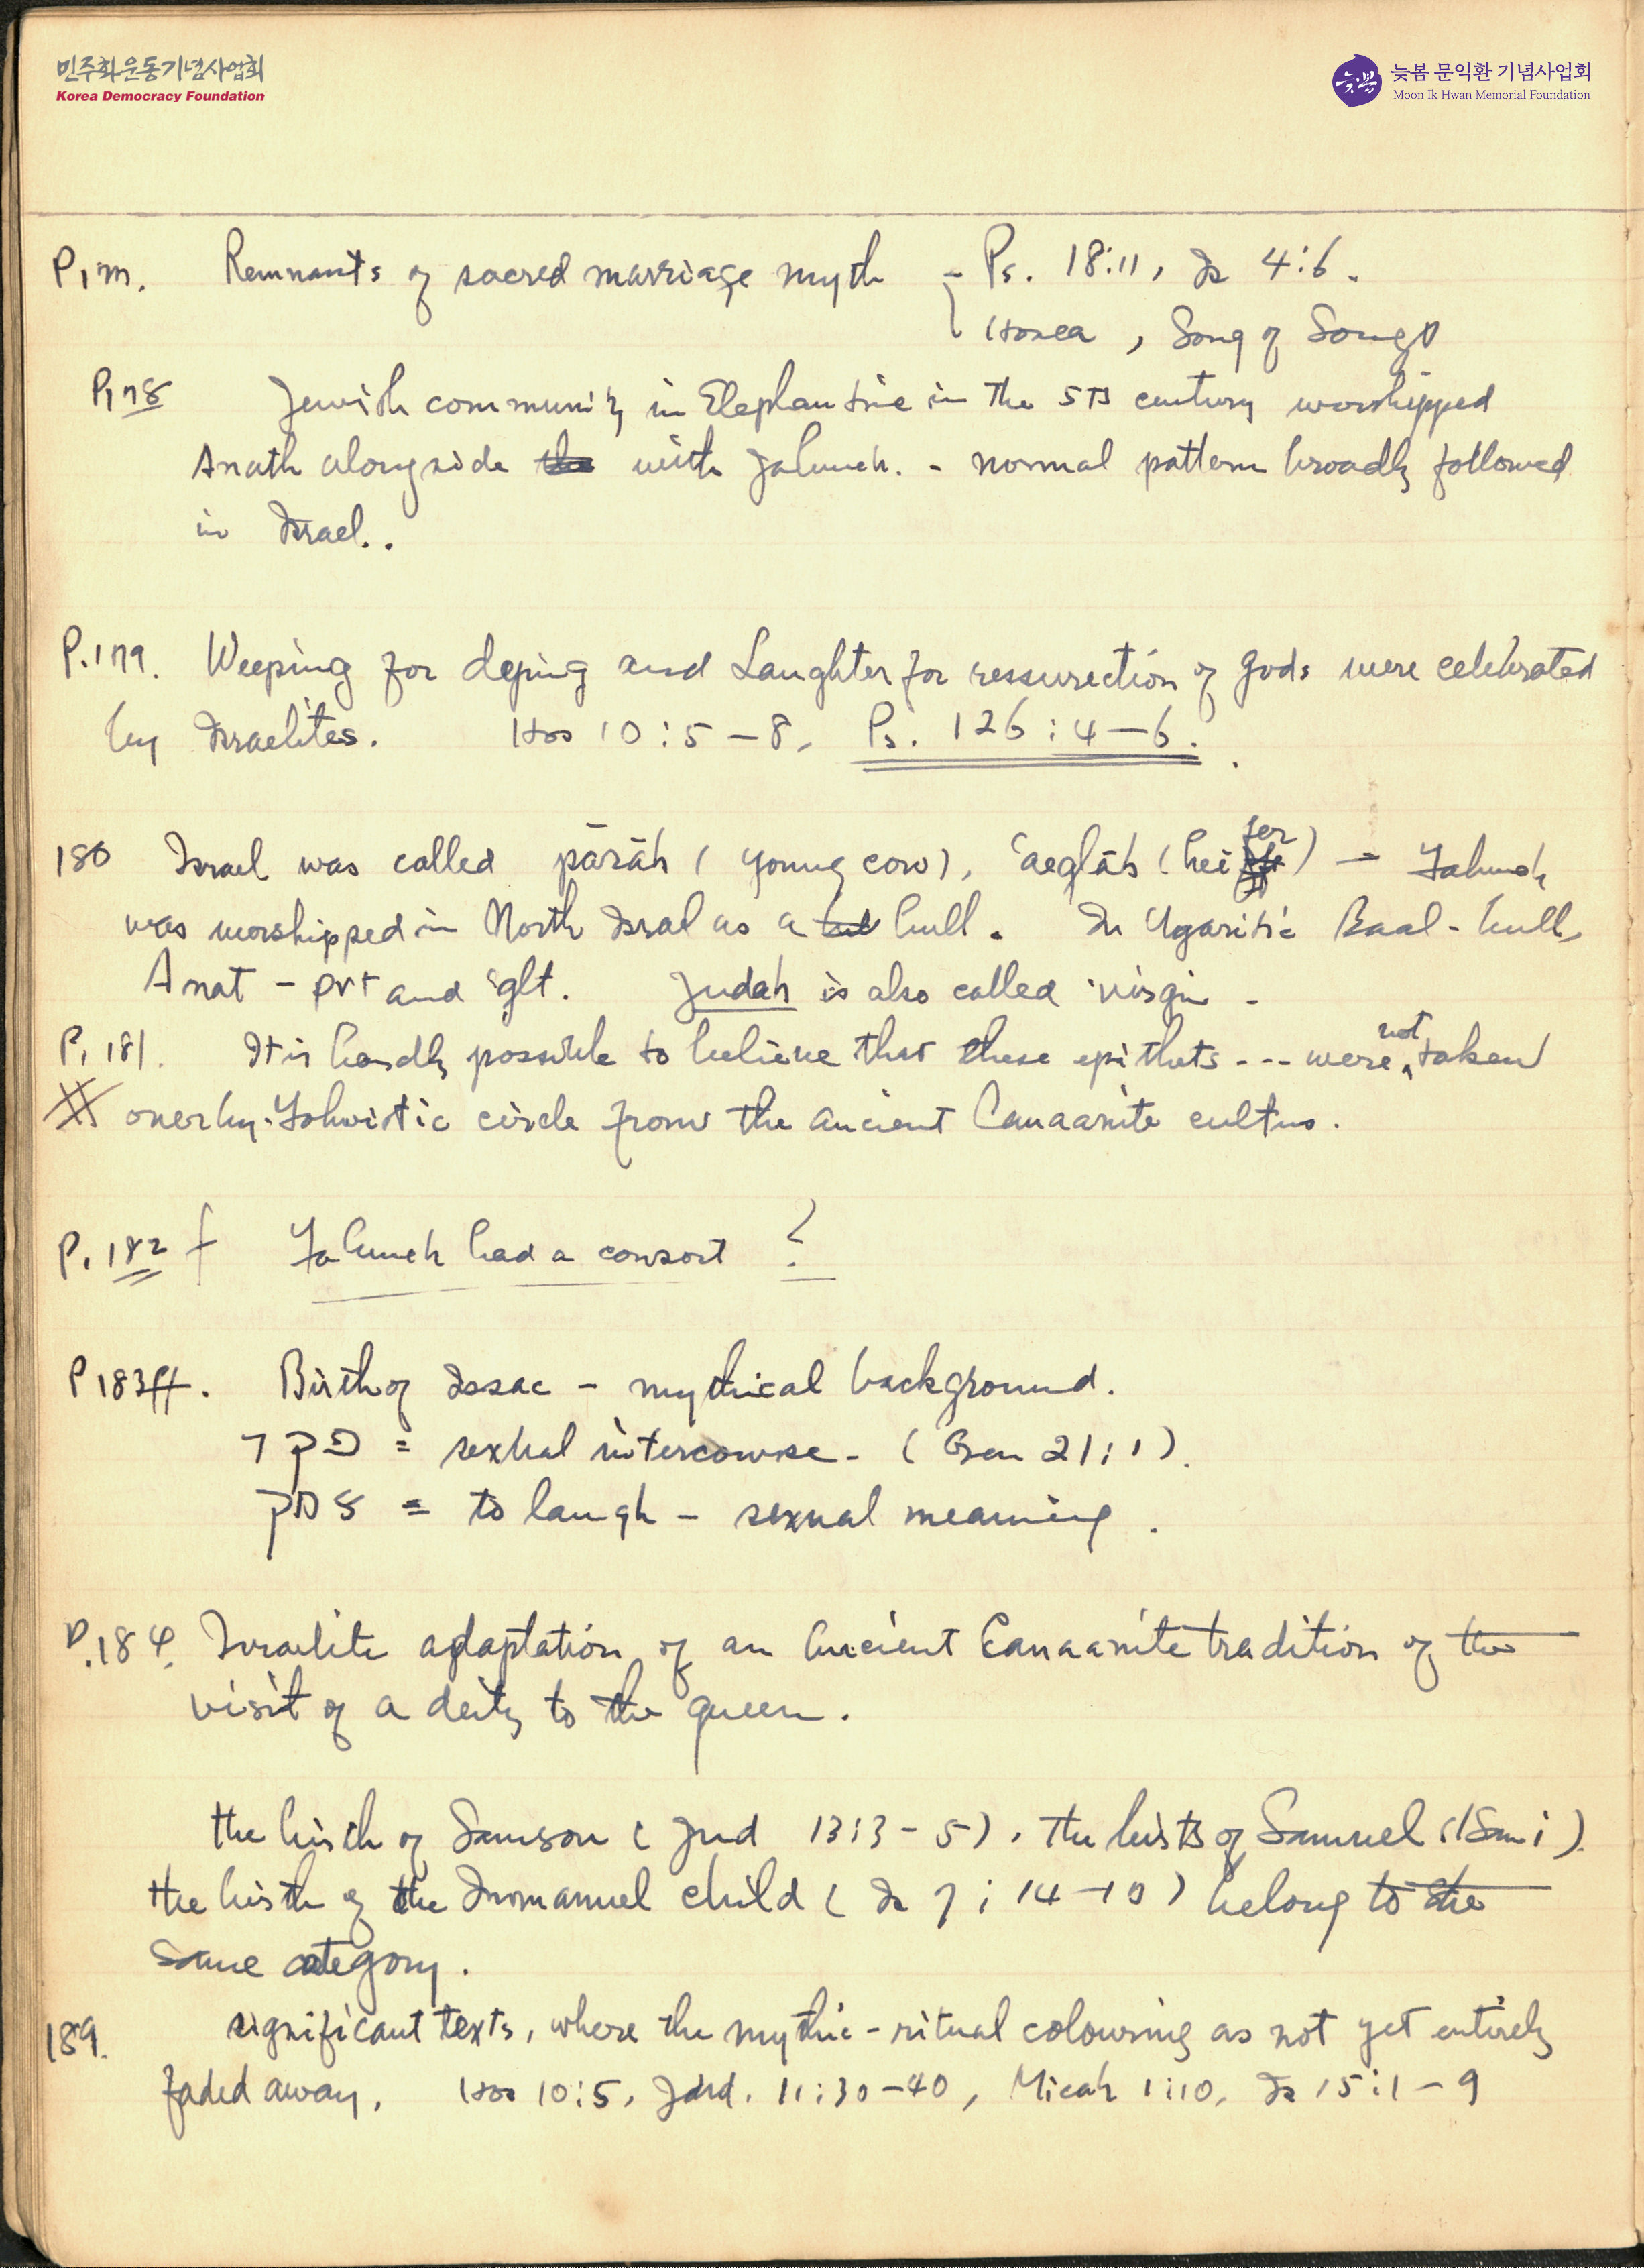 민주화운동기념사업회
Korea Democracy Foundation
늦봄 문익환 기념사업회
Moon Ik Hwan Memorial Foundation
P, 177. Remnants of sacred marriage myth - Ps. 18:11, Is 4:6.
Hosea, Song of Songs
P, 178 Jewish community in Elephantine in the 5th century worshipped
Anath alongside the with Jahweh. - normal pattern broadly followed
in Israel..
P. 179. Weeping for deping and Laughter for ressurection of gods were celebrated
by Israelites. Hos 10:5-8, Ps. 126:4-6.
180 Israel was called pārāh (young cow), 'aeglāh (heifer) - Yahweh
was worshipped in North Israel as a bull. In Ugaritic Baal-bull,
Anat - prt and 'glt. Judah is also called 'virgin -
P, 181. It is hardly possible to believe that these epithets --- were not taken
over by Yahwistic circle from the ancient Canaanite cultus.
P. 182 f Yahweh had a consort ?
P 183ff. Birth of Issac - mythical background.
פקד = sexual intercourse - (Gen 21:1).
צחק = to laugh - sexual meaning.
P.184. Israelite adaptation of an Ancient Canaanite tradition of the
visit of a deity to the queen.
the birth of Samson (Jud 13:3-5), the birth of Samuel (1 Sam 1).
the birth of the Immanuel child (Is 7:14-10) belong to the
same category.
189. significant texts, where the mythic-ritual colouring as not yet entirely
faded away, Hos 10:5, Jud. 11:30-40, Micah 1:10, Is 15:1-9